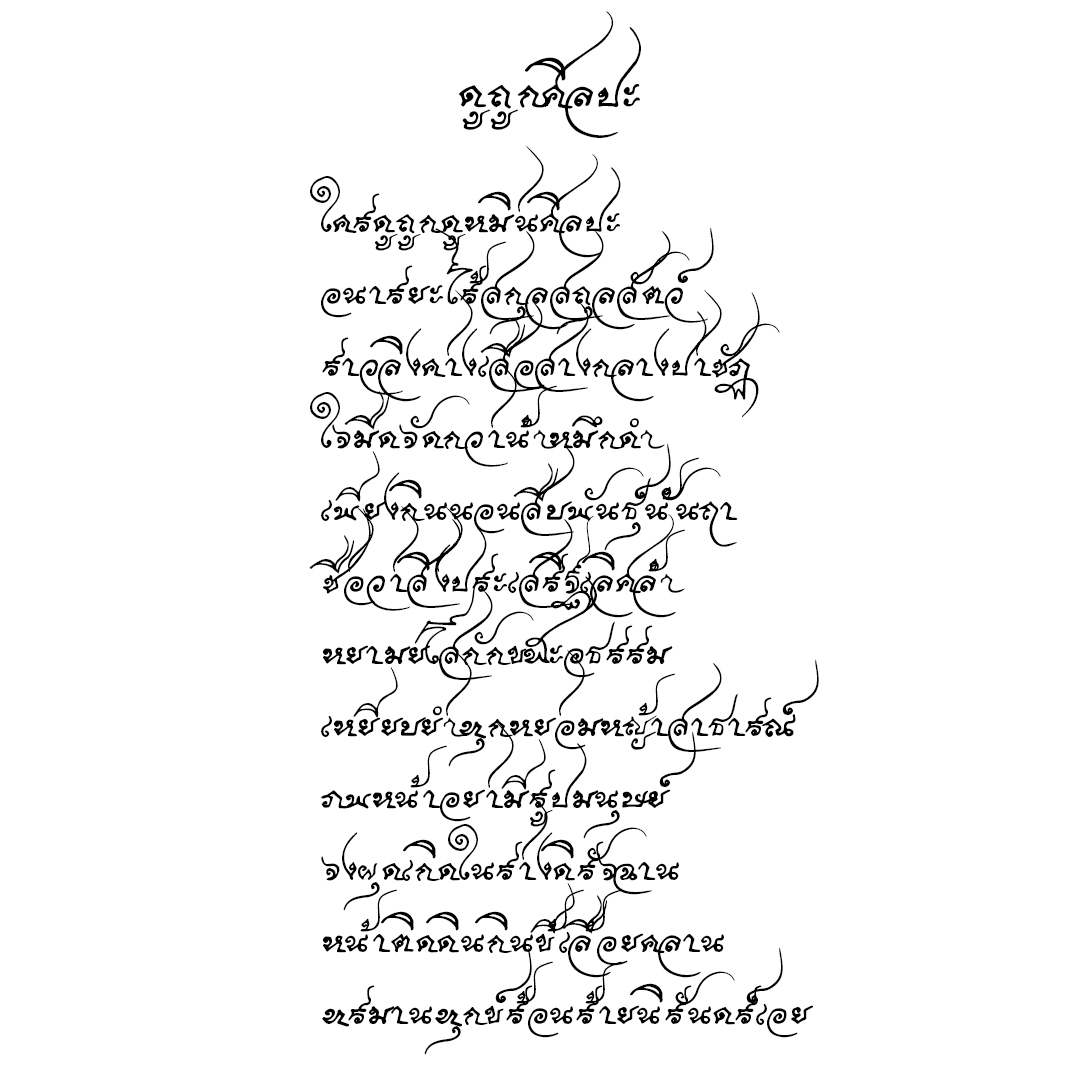 ดูถูกศิลปะ
ใครดูถูกดูหมิ่นศิลปะ
อนารยะไร้สกุลสถุลสัตว์
ราวลิงค่างเสือสางกลางป่าชัฏ
ใจมืดจัดกว่าน้ำหมึกดำ
เพียงกินนอนสืบพันธุ์นั้นฤา
ชื่อว่าสิ่งประเสริฐเลิศล้ำ
หยามยโสกักขฬะอธรรม
เหยียบย่ำทุกหย่อมหญ้าสาธารณ์
ภพหน้าอย่ามีรูปมนุษย์
จงผุดเกิดในร่างดิรัจฉาน
หน้าติดดินกินขี้เลื้อยคลาน
ทรมานทุกข์ร้อนร้ายนิรันดร์เอย